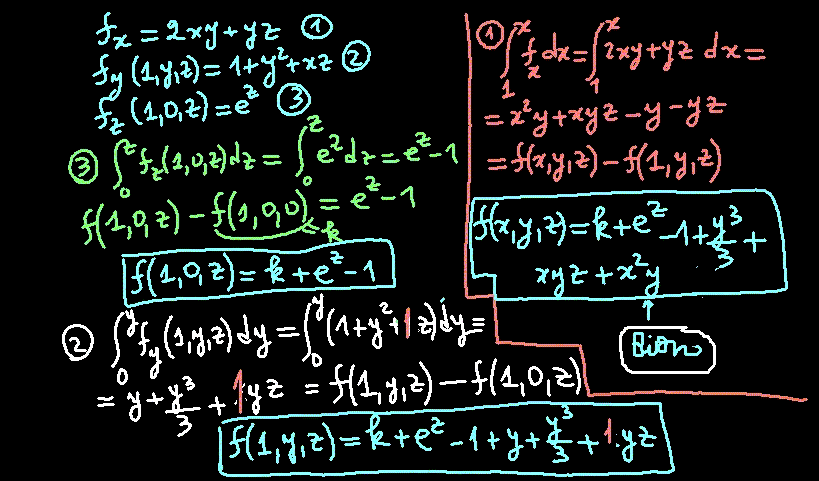 f_x = 2xy + yz ①
f_y (1,y,z) = 1+y²+xz ②
f_z (1,0,z) = e^z ③
③ ∫_0^z f_z(1,0,z)dz = ∫_0^z e^z dz = e^z - 1
f(1,0,z) - f(1,0,0) = e^z - 1
= k
f(1,0,z) = k + e^z - 1
② ∫_0^y f_y(1,y,z)dy = ∫_0^y (1+y²+1z)dy =
= y + y³/3 + 1yz = f(1,y,z) - f(1,0,z)
f(1,y,z) = k + e^z - 1 + y + y³/3 + 1·yz
① ∫_1^x f_x dx = ∫_1^x 2xy + yz dx =
= x²y + xyz - y - yz
= f(x,y,z) - f(1,y,z)
f(x,y,z) = k + e^z - 1 + y³/3 +
xyz + x²y